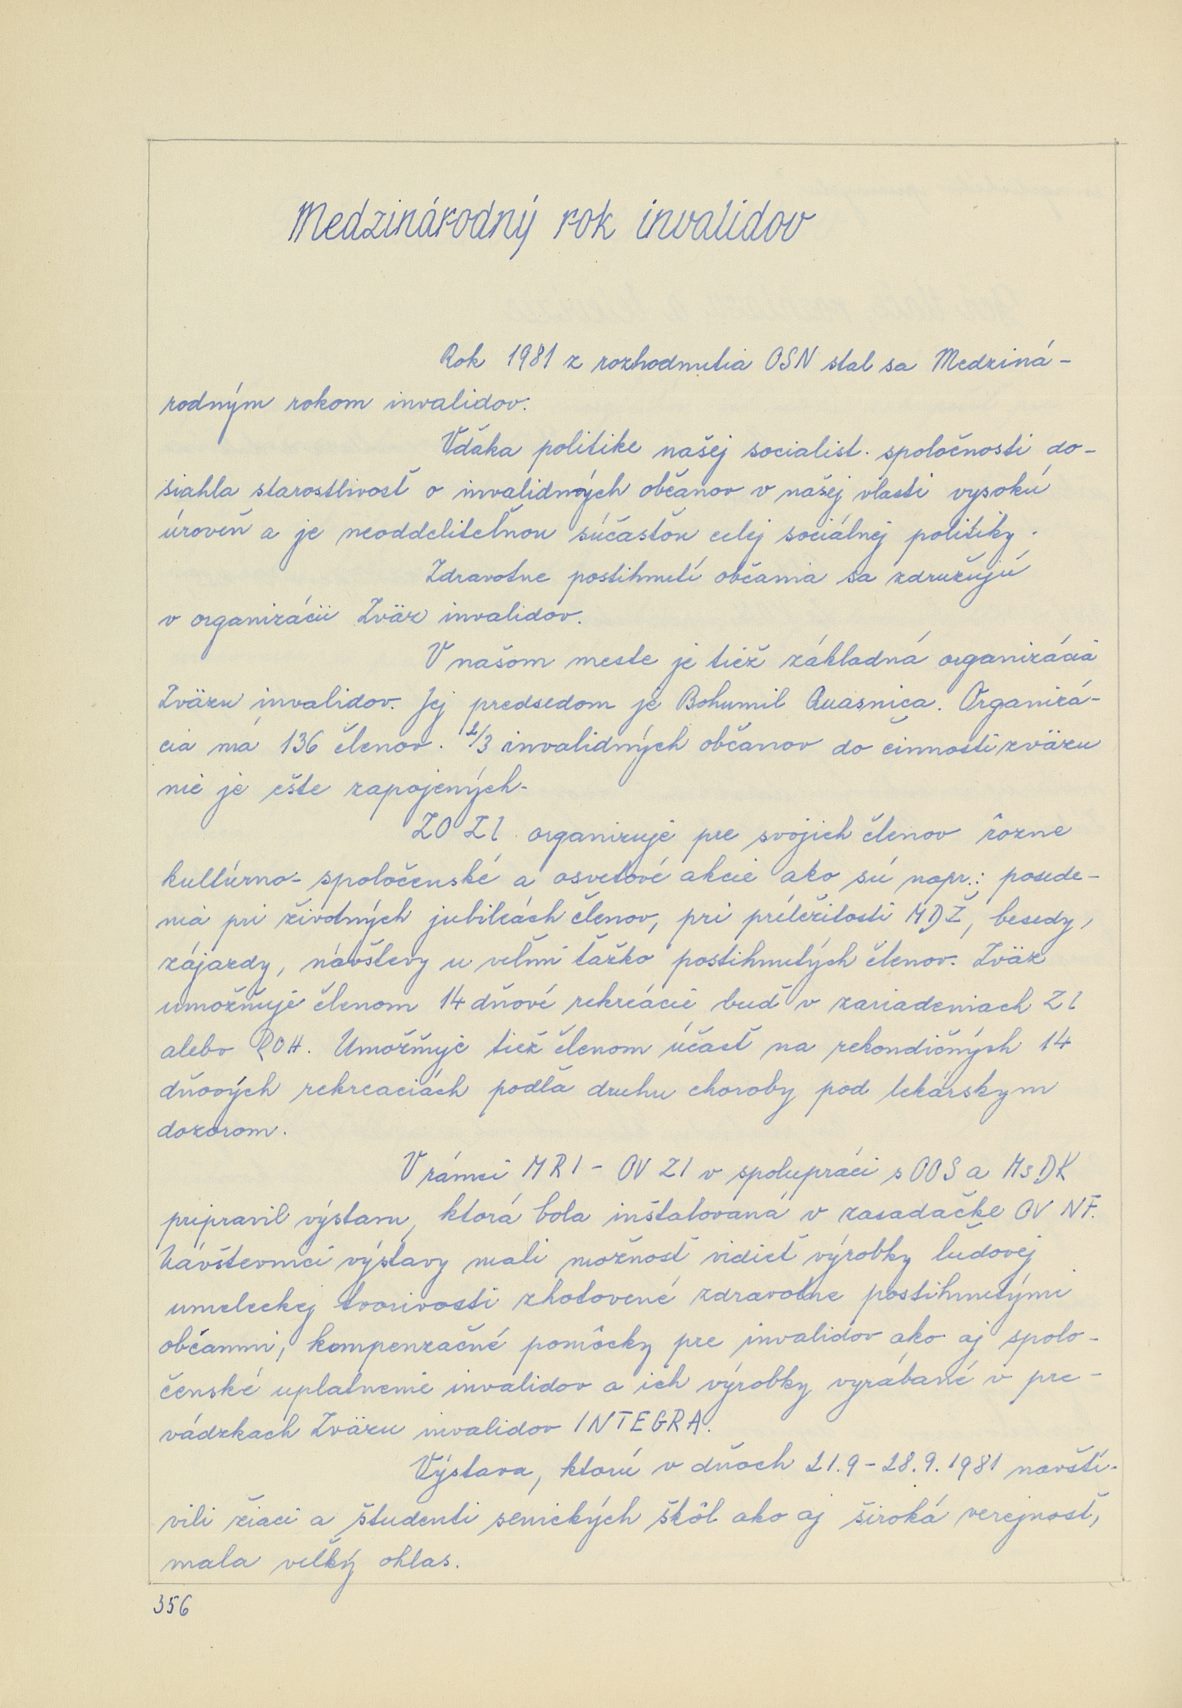 Medzinárodný rok invalidov
Rok 1981 z rozhodnutia OSN stal sa Medziná-
rodným rokom invalidov.
Vďaka politike našej socialist. spoločnosti do-
siahla starostlivosť o invalidných občanov v našej vlasti vysokú
úroveň a je neoddeliteľnou súčasťou celej sociálnej politiky.
Zdravotne postihnutí občania sa združujú
v organizácii Zväz invalidov.
V našom meste je tiež základná organizácia
Zväzu invalidov. Jej predsedom je Bohumil Quasnica. Organizá-
cia má 136 členov. 2/3 invalidných občanov do činnosti zväzu
nie je ešte zapojených.
ZO ZI organizuje pre svojich členov rôzne
kultúrno-spoločenské a osvetové akcie ako sú napr.: posede-
nia pri životných jubileách členov, pri príležitosti MDŽ, besedy,
zájazdy, návštevy u veľmi ťažko postihnutých členov. Zväz
umožňuje členom 14 dňové rekreácie buď v zariadeniach ZI
alebo ROH. Umožňuje tiež členom účasť na rekondičných 14
dňových rekreaciách podľa druhu choroby pod lekárskym
dozorom.
V rámci MRI - OV ZI v spolupráci s OOS a MsDK
pripravil výstavu, ktorá bola inštalovaná v zasadačke OV NF.
Návštevníci výstavy mali možnosť vidieť výrobky ľudovej
umeleckej tvorivosti zhotovené zdravotne postihnutými
občanmi, kompenzačné pomôcky pre invalidov ako aj spolo-
čenské uplatnenie invalidov a ich výrobky vyrábané v pre-
vádzkach Zväzu invalidov INTEGRA.
Výstava, ktorú v dňoch 21.9-28.9.1981 navští-
vili žiaci a študenti senických škôl ako aj široká verejnosť,
mala veľký ohlas.
356